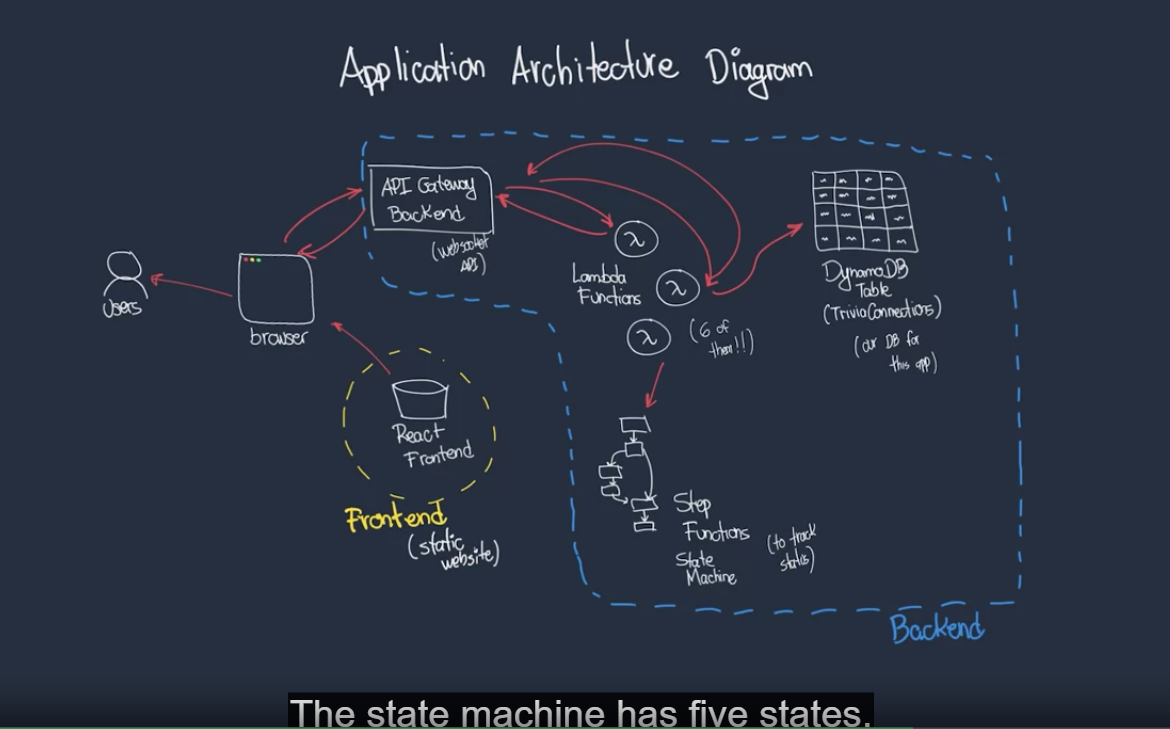 Application Architecture Diagram
API Gateway
Backend
(websocket
API)
Users
browser
λ
Lambda
Functions
λ
λ
(6 of
them!!)
DynamoDB
Table
(TriviaConnections)
(our DB for
this app)
React
Frontend
Frontend
(static
website)
Step
Functions
State
Machine
(to track
status)
Backend
The state machine has five states.